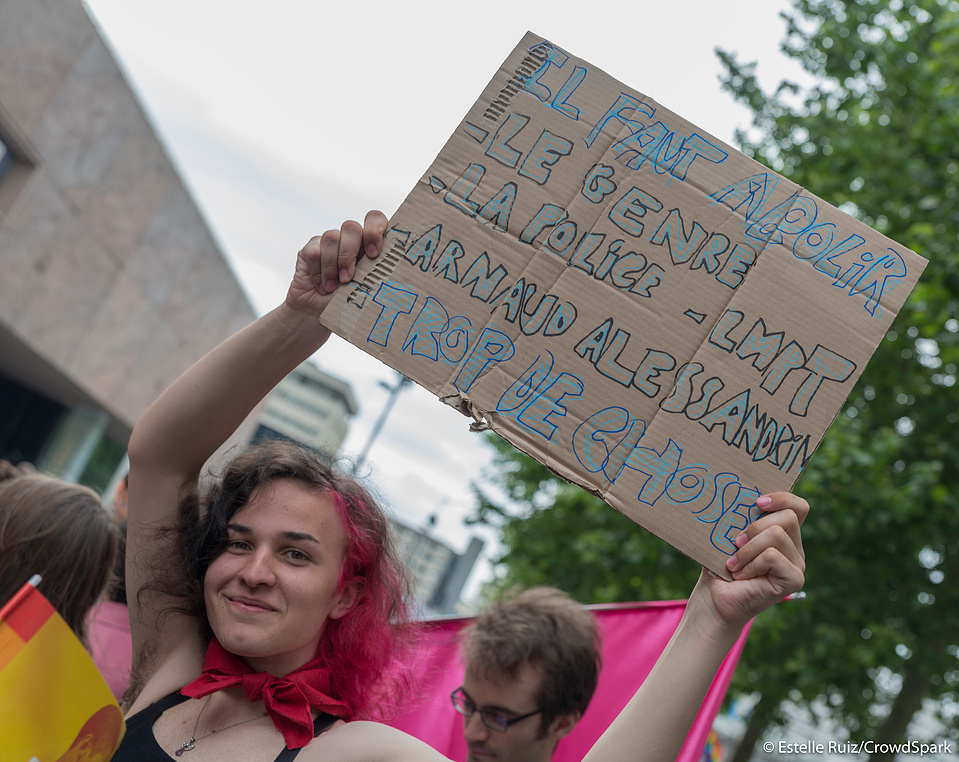 IL FAUT ABOLIR
- LE GENRE
- LA POLICE - LMPT
- ARNAUD ALESSANDRIN
TROP DE CHOSES
© Estelle Ruiz/CrowdSpark